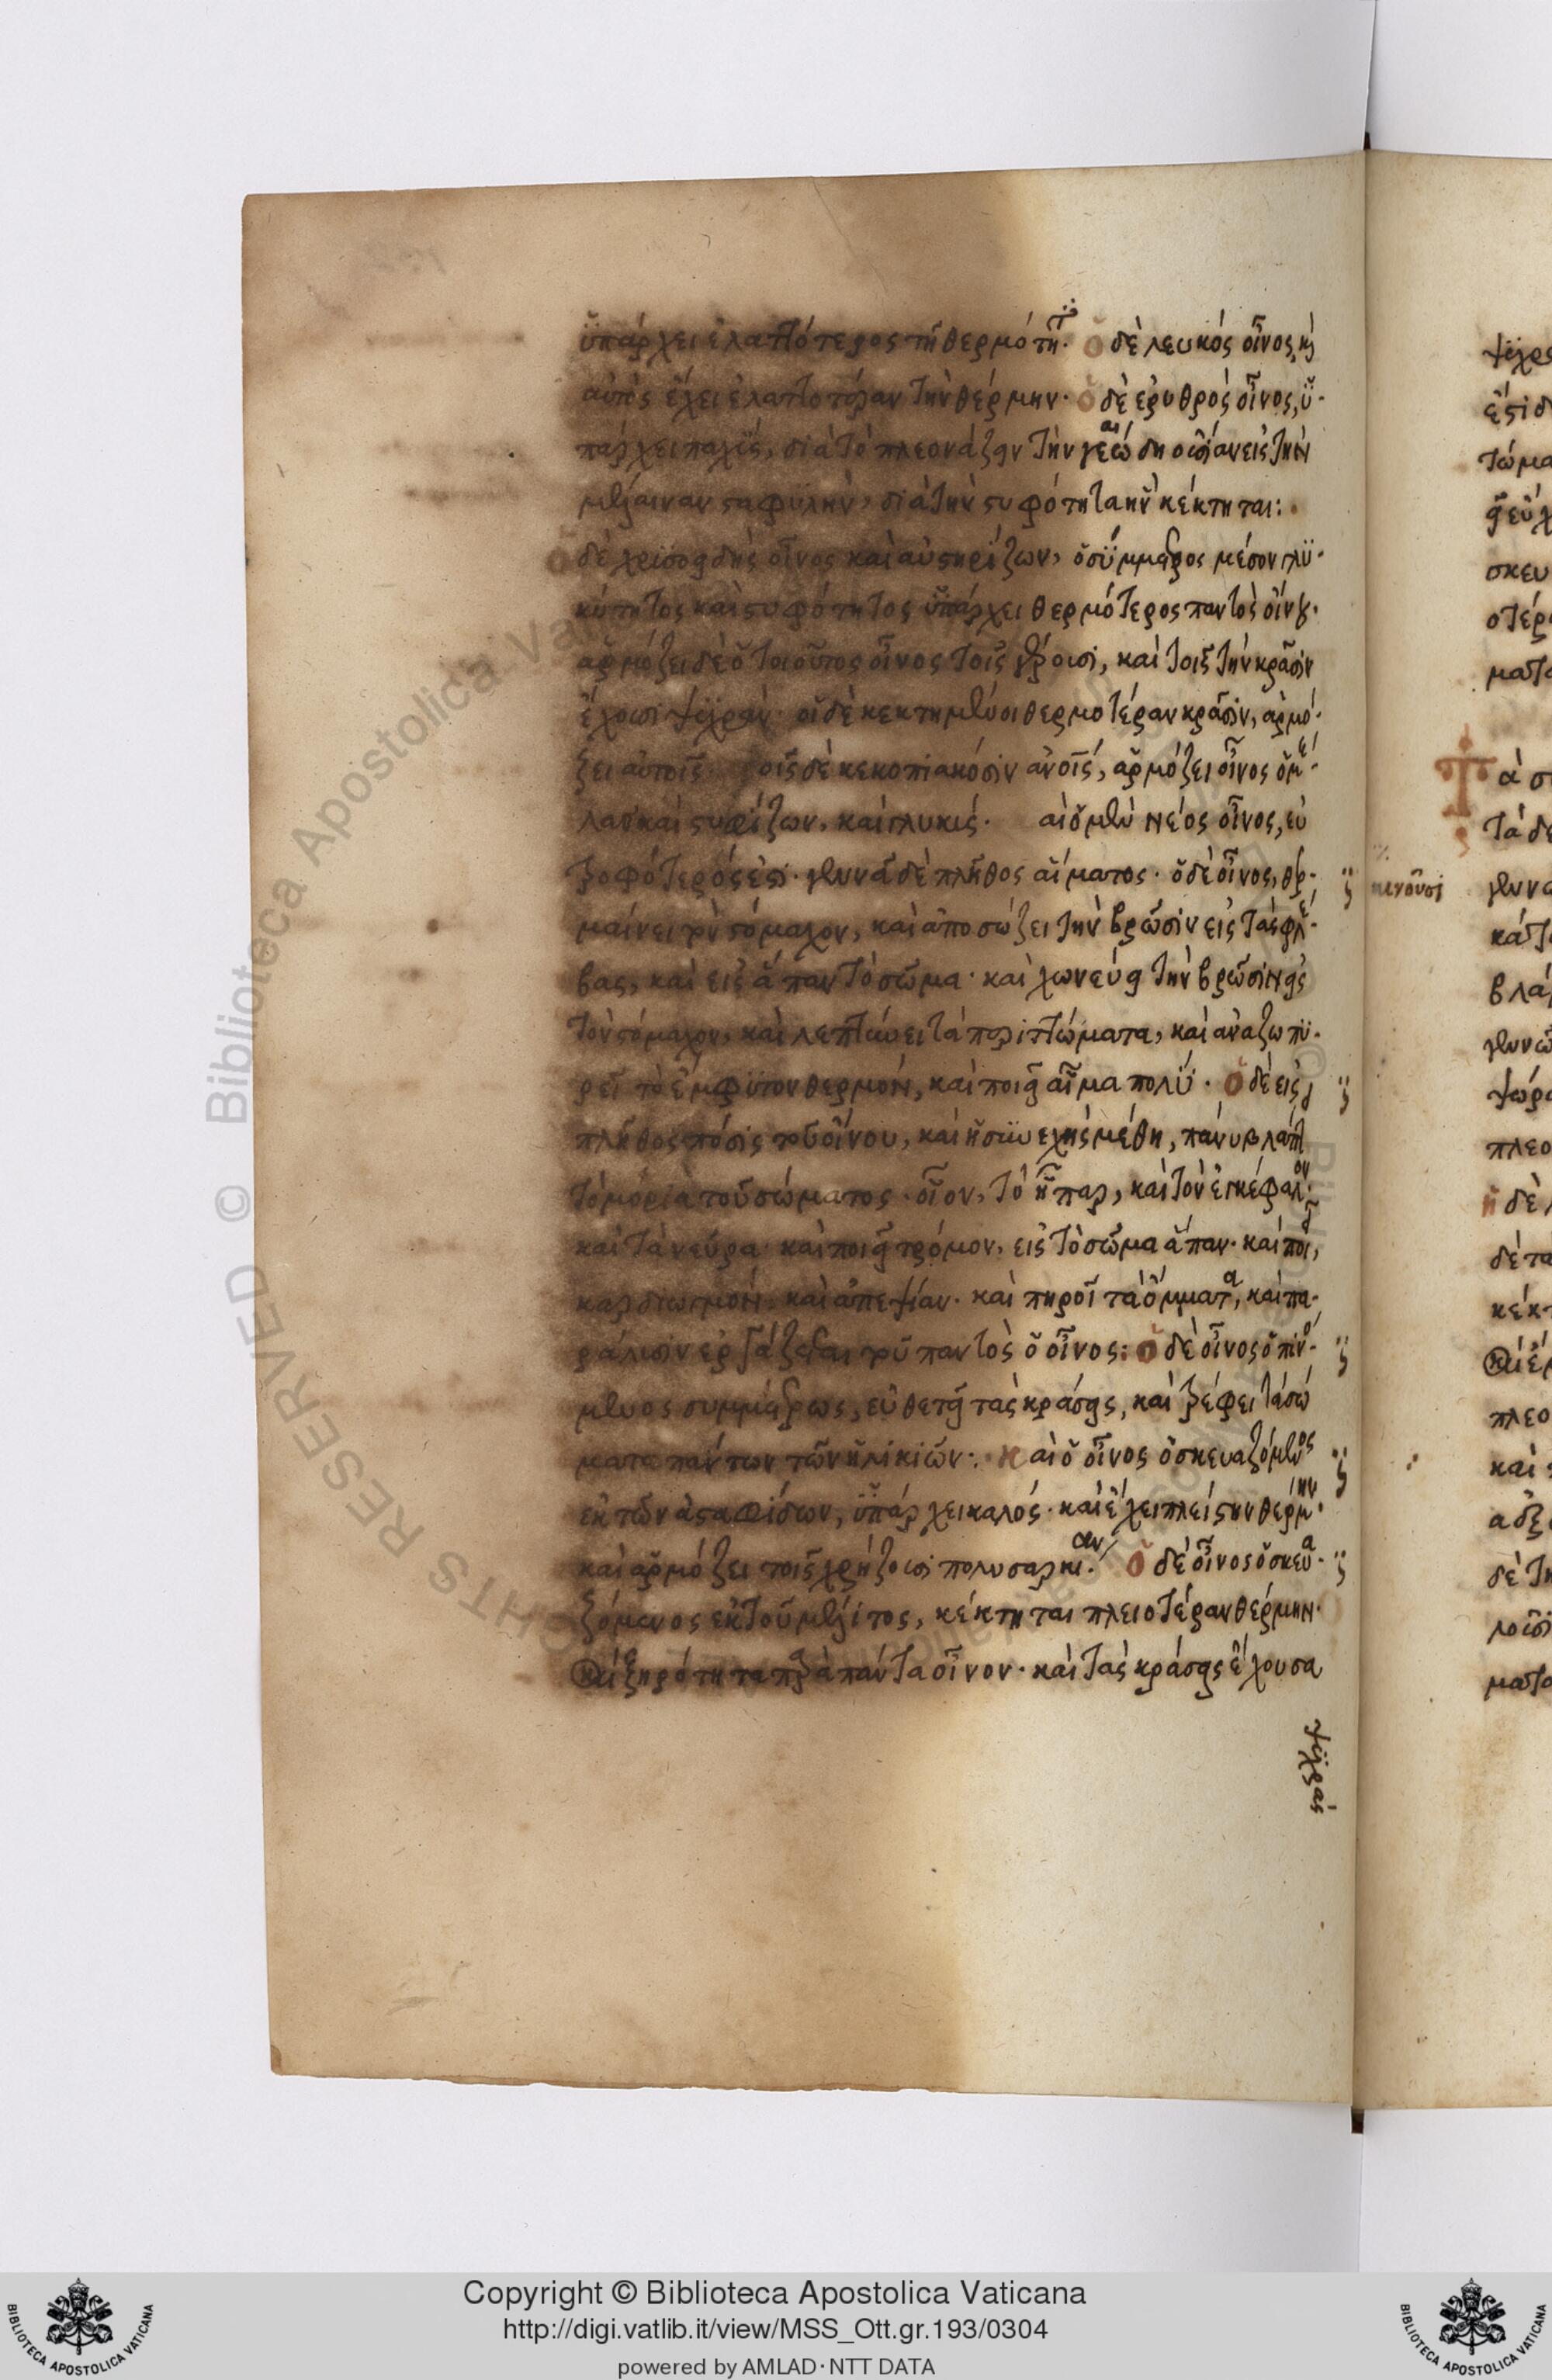 ὑπάρχει ἐλαττότερος τῇ θερμότητι. ὁ δὲ λευκὸς οἶνος, κὶ
αὐτὸς ἔχει ἐλαττοτέραν τὴν θέρμην. ὁ δὲ ἐρυθρὸς οἶνος, ὑ-
πάρχει παχὺς, διὰ τὸ πλεονάζειν τὴν γεώδη οὐσίαν εἰς τὴν
μέλαιναν σταφυλὴν, διὰ τὴν στυφότητα ἣν κέκτηται:
ὁ δὲ χρυσοειδὴς οἶνος καὶ αὐστηρίζων, ὁ σύμμετρος μέσον γλυ-
κύτητος καὶ στυφότητος ὑπάρχει θερμότερος παντὸς οἴνου.
ἁρμόζει δὲ ὁ τοιοῦτος οἶνος τοῖς γέρουσι, καὶ τοῖς τὴν κρᾶσιν
ἔχουσι ψυχράν. οἱ δὲ κεκτημένοι θερμοτέραν κρᾶσιν, ἁρμό-
ζει αὐτοῖς. τοῖς δὲ κεκοπιακόσιν ἀνοῖς, ἁρμόζει οἶνος ὁ μέ-
λας καὶ στυφίζων, καὶ γλυκύς. αἱ ὁ μὲν νέος οἶνος, εὐ
τροφότερός ἐστι. γεννᾶ δὲ πλῆθος αἵματος. ὁ δὲ οἶνος, θερ-
μαίνει τὸν στόμαχον, καὶ ἀποσώζει τὴν βρῶσιν εἰς τὰς φλέ-
βας, καὶ εἰς ἅπαν τὸ σῶμα. καὶ χωνεύει τὴν βρῶσιν εἰς
τὸν στόμαχον, καὶ λεπτύνει τὰ περιττώματα, καὶ ἀναζωπυ-
ρεῖ τὸ ἔμφυτον θερμὸν, καὶ ποιεῖ αἷμα πολύ. ὁ δὲ εἰς
πλῆθος πόσις τοῦ οἴνου, καὶ ἡ συνεχὴς μέθη, πάνυ βλάπτει
τὸ μόρια τοῦ σώματος. οἷον, τὸ ἧπαρ, καὶ τὸν ἐγκέφαλον.
καὶ τὰ νεῦρα. καὶ ποιεῖ τρόμον, εἰς τὸ σῶμα ἅπαν. καὶ ποιεῖ,
καρδιωγμὸν, καὶ ἀπεψίαν. καὶ πηροῖ τὰ ὄμματα, καὶ πα-
ράλυσιν ἐργάζεται τοῦ παντὸς ὁ οἶνος: ὁ δὲ οἶνος ὁ πινό-
μενος συμμέτρως, εὐθετεῖ τὰς κράσεις, καὶ τρέφει τὰ σώ
ματα πάντων τῶν ἡλικιῶν. καὶ ὁ οἶνος ὁ σκευαζόμενος
ἐκ τῶν ἀσταφίδων, ὑπάρχει καλός. καὶ ἔχει πλείστην θέρμην.
καὶ ἁρμόζει τοῖς χρήζουσι πολυσαρκίαν. ὁ δὲ οἶνος ὁ σκευα-
ζόμενος ἐκ τοῦ μέλιτος, κέκτηται πλειοτέραν θέρμην.
καὶ ξηρότητα παρὰ πάντα οἶνον. καὶ τὰς κράσεις ἔχουσα
ψυχράς
κινοῦσι
Copyright © Biblioteca Apostolica Vaticana
http://digi.vatlib.it/view/MSS_Ott.gr.193/0304
powered by AMLAD·NTT DATA